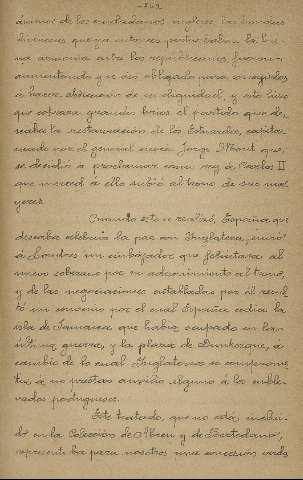 - 242 -
ánimos de los ciudadanos ingleses las
divisiones que ya entonces perturbaban la bue
na armonía entre los republicanos, fueron
aumentando que se vió obligado
á hacer abdicación de su dignidad, y esto hizo
que cobrara grandes bríos el partido que de
seaba la restauración de los Estuardos, capita
neado por el general Jorge Monk que
se decidió á proclamar como rey á Carlos II
que merced á ello subió al trono de sus ma
yores.
Cuando esto se realizó, España que
deseaba celebrar la paz con Inglaterra, envió
á Londres un embajador que felicitara al
nuevo soberano por su advenimiento al trono,
y de las negociaciones entabladas por él resul
tó un convenio por el cual España cedía la
isla de Jamaica que había ocupado en la
última guerra, y la plaza de Dunkerque, á
cambio de lo cual Inglaterra se comprome
tía á no prestar auxilio alguno á los suble
vados portugueses.
Este tratado, que no está inclui
do en la Colección de Abreu y de Bertodano,
representaba para nosotros una concesión